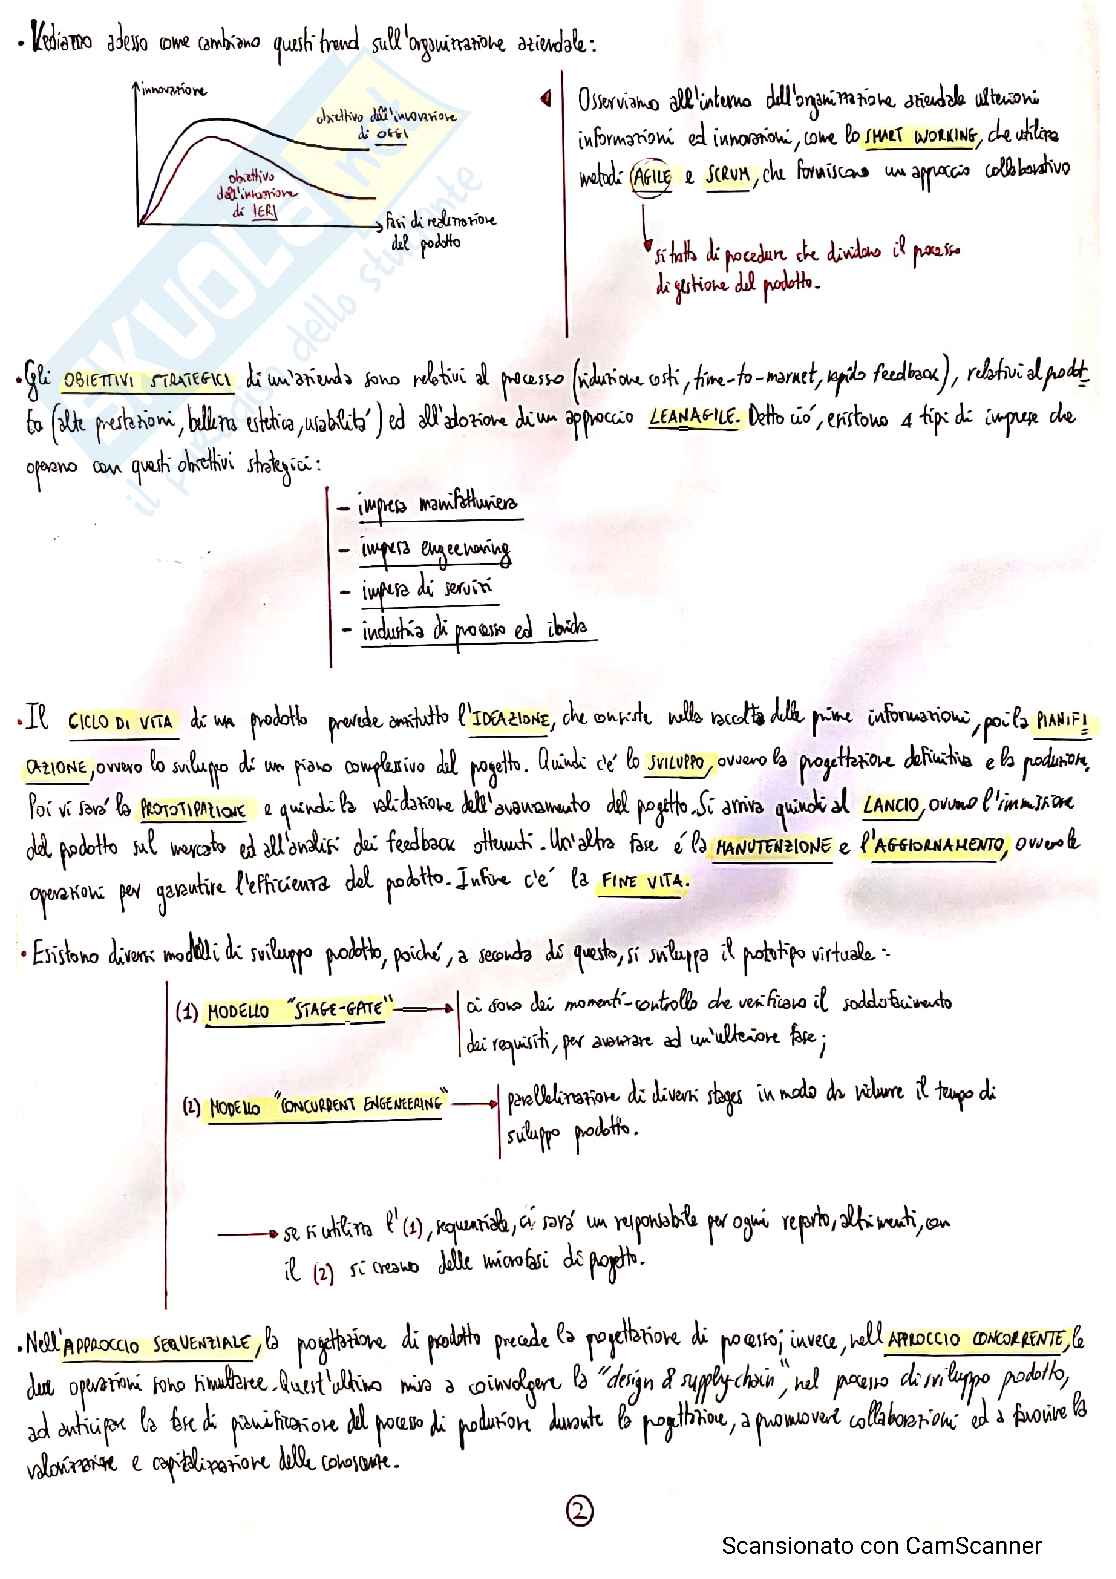 • Vediamo adesso come cambiano questi trend sull'organizzazione aziendale:
innovazione
obiettivo dell'innovazione
di OGGI
obiettivo
dell'innovazione
di IERI
fasi di realizzazione
del prodotto
Osserviamo all'interno dell'organizzazione aziendale ulteriori
informazioni ed innovazioni, come lo SMART WORKING, che utilizza
metodi AGILE e SCRUM, che forniscono un approccio collaborativo
si tratta di procedure che dividono il processo
di gestione del prodotto.
SKUOLA.net
il paradiso dello studente
• Gli OBIETTIVI STRATEGICI di un'azienda sono relativi al processo (riduzione costi, time-to-market, rapido feedback), relativi al prodot-
to (alte prestazioni, bellezza estetica, usabilità) ed all'adozione di un approccio LEANAGILE. Detto ciò, esistono 4 tipi di imprese che
operano con questi obiettivi strategici:
- impresa manifatturiera
- impresa engeenering
- impresa di servizi
- industria di processo ed ibrida
• Il CICLO DI VITA di un prodotto prevede anzitutto l'IDEAZIONE, che consiste nella raccolta delle prime informazioni, poi la PIANIFI
CAZIONE, ovvero lo sviluppo di un piano complessivo del progetto. Quindi c'é lo SVILUPPO, ovvero la progettazione definitiva e la produzione.
Poi vi sará la PROTOTIPAZIONE e quindi la validazione dell'avanzamento del progetto. Si arriva quindi al LANCIO, ovvero l'immissione
del prodotto sul mercato ed all'analisi dei feedback ottenuti. Un'altra fase é la MANUTENZIONE e l'AGGIORNAMENTO, ovvero le
operazioni per garantire l'efficienza del prodotto. Infine c'é la FINE VITA.
• Esistono diversi modelli di sviluppo prodotto, poiché, a seconda di questo, si sviluppa il prototipo virtuale:
(1) MODELLO "STAGE-GATE"
ci sono dei momenti-controllo che verificano il soddisfacimento
dei requisiti, per avanzare ad un'ulteriore fase;
(2) MODELLO "CONCURRENT ENGENEERING"
parallelizzazione di diversi stages in modo da ridurre il tempo di
sviluppo prodotto.
se si utilizza l'(1), sequenziale, ci sará un responsabile per ogni reparto, altrimenti, con
il (2) si creano delle microfasi di progetto.
• Nell'APPROCCIO SEQUENZIALE, la progettazione di prodotto precede la progettazione di processo; invece, nell'APPROCCIO CONCORRENTE, le
due operazioni sono simultanee. Quest'ultimo mira a coinvolgere la "design & supply-chain", nel processo di sviluppo prodotto,
ad anticipare la fase di pianificazione del processo di produzione durante la progettazione, a promuovere collaborazioni ed a favorire la
valorizzazione e capitalizzazione delle conoscenze.
2
Scansionato con CamScanner